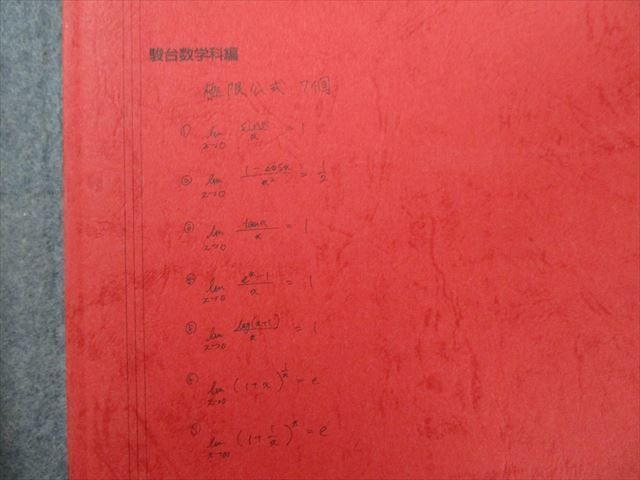 駿台数学科編
極限公式 7個
① lim x→0 sinx/x = 1
② lim x→0 1-cosx/x² = 1/2
③ lim x→0 tanx/x = 1
④ lim x→0 e^x-1/x = 1
⑤ lim x→0 log(x+1)/x = 1
⑥ lim x→0 (1+x)^(1/x) = e
⑦ lim x→∞ (1+1/x)^x = e